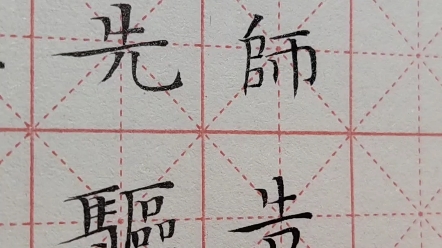 先師
驅